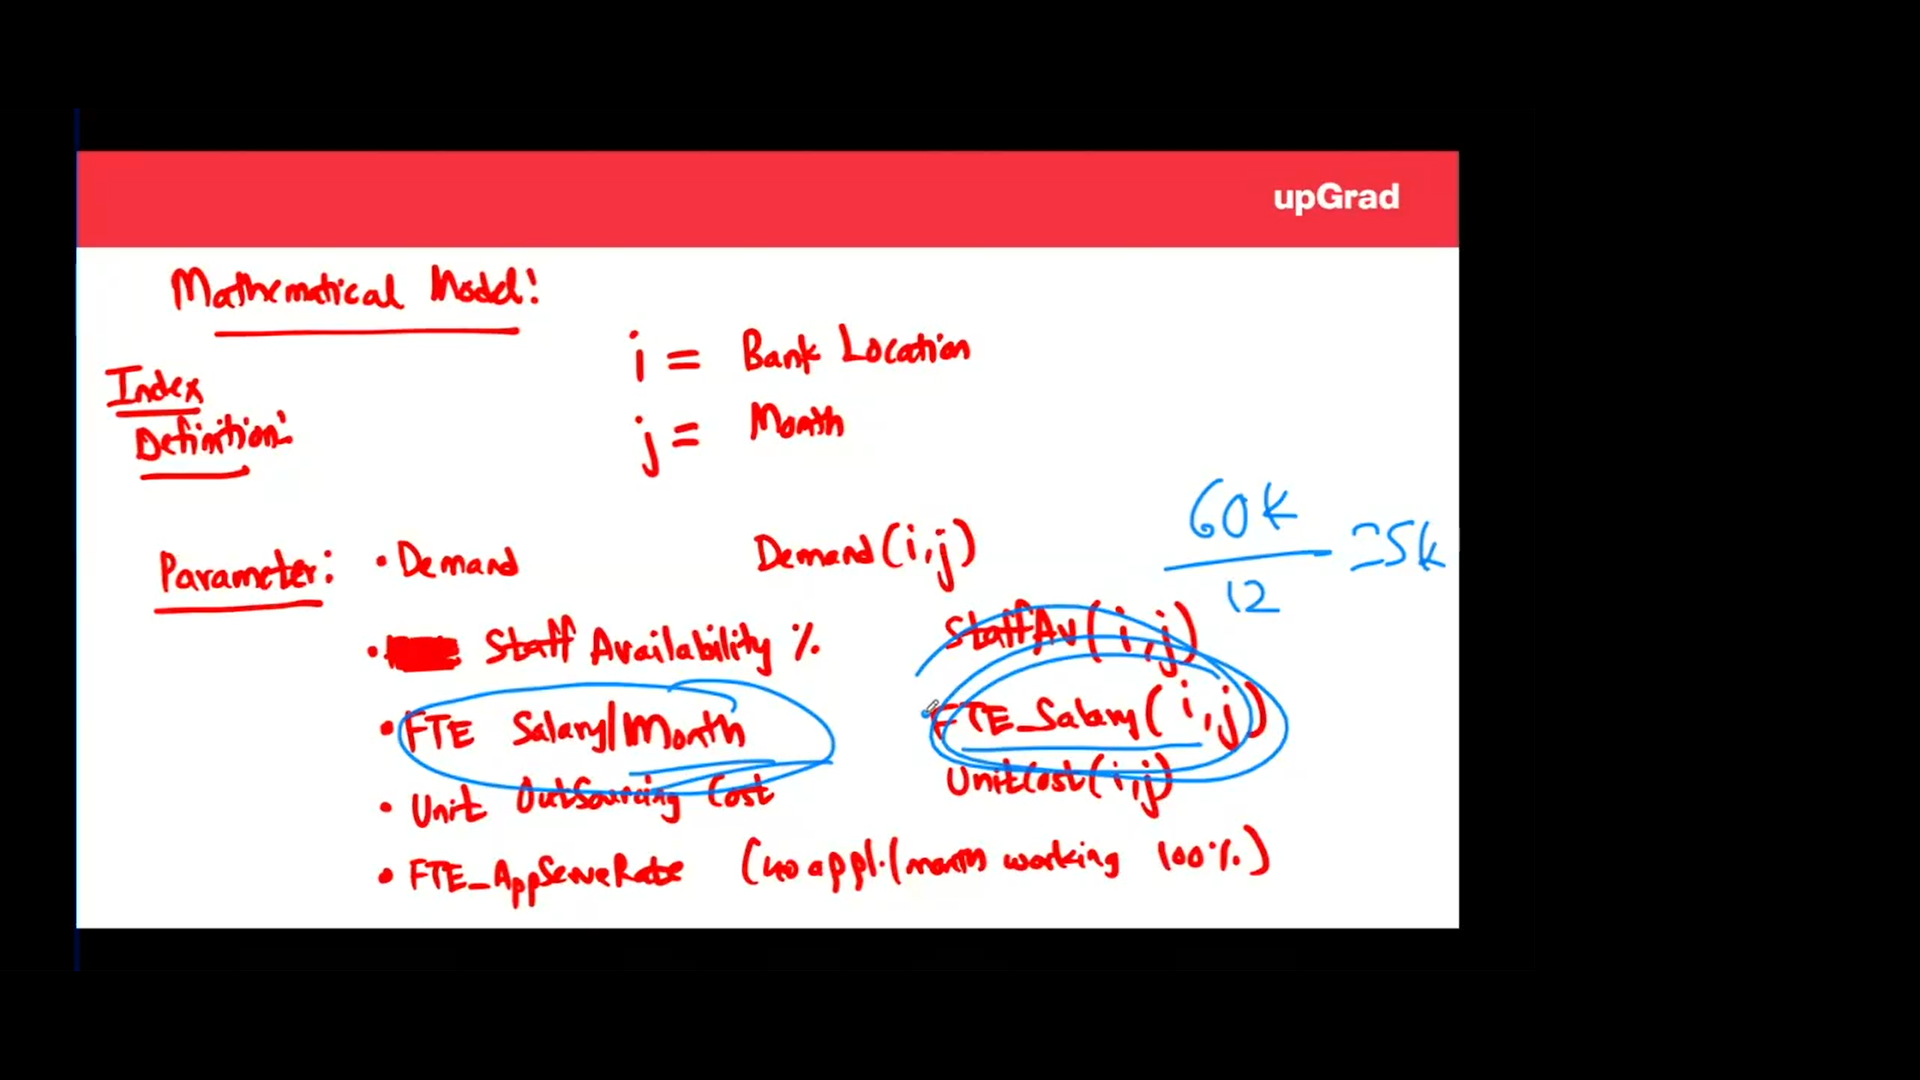 upGrad
Mathematical Model:
i = Bank Location
Index
Definition:
j = Month
60k
12
= 5k
Parameter: • Demand Demand(i,j)
• Staff Availability % StaffAv(i,j)
• FTE Salary/Month FTE_Salary(i,j)
• Unit OutSourcing Cost UnitCost(i,j)
• FTE_AppServeRate (40 appl./month working 100%)